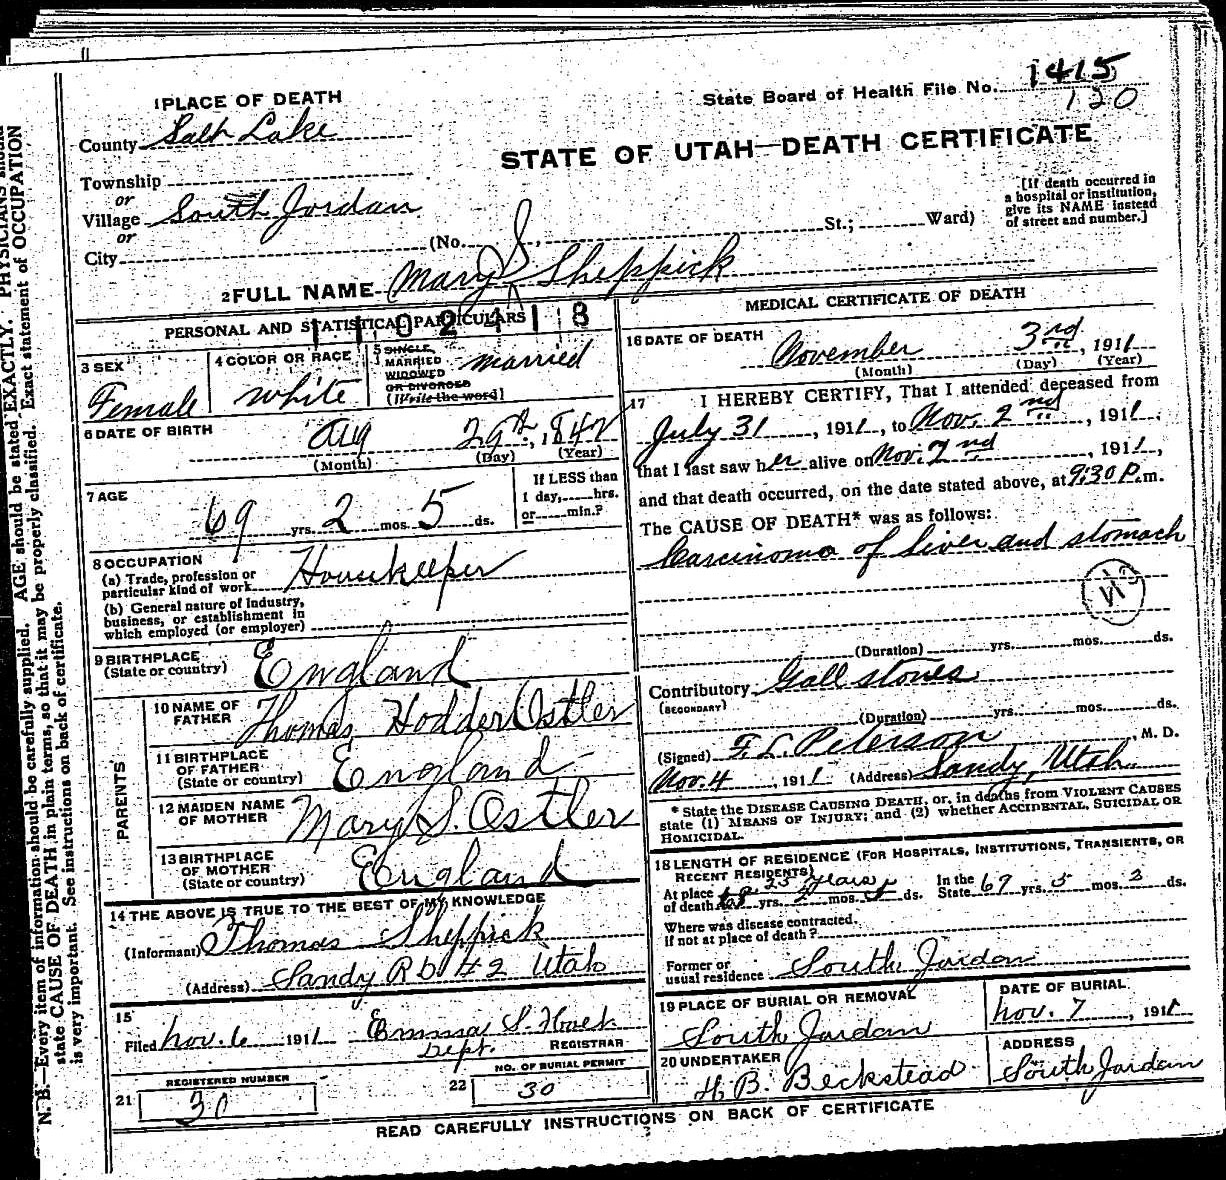 1 PLACE OF DEATH
State Board of Health File No. 1415
120
County Salt Lake
STATE OF UTAH—DEATH CERTIFICATE
Township
or
Village South Jordan
or
City (No. , St.; Ward)
[If death occurred in
a hospital or institution,
give its NAME instead
of street and number.]
2 FULL NAME Mary S Sheppick
PERSONAL AND STATISTICAL PARTICULARS
3 SEX
Female
4 COLOR OR RACE
white
5 SINGLE,
MARRIED
WIDOWED
OR DIVORCED
(Write the word)
married
6 DATE OF BIRTH
Aug 29th, 1842
(Month) (Day) (Year)
7 AGE
69 yrs. 2 mos. 5 ds.
If LESS than
1 day, hrs.
or min.?
8 OCCUPATION
(a) Trade, profession or
particular kind of work Housekeeper
(b) General nature of Industry,
business, or establishment in
which employed (or employer)
9 BIRTHPLACE
(State or country) England
PARENTS
10 NAME OF
FATHER Thomas Hodder Ostler
11 BIRTHPLACE
OF FATHER
(State or country) England
12 MAIDEN NAME
OF MOTHER Mary S. Ostler
13 BIRTHPLACE
OF MOTHER
(State or country) England
14 THE ABOVE IS TRUE TO THE BEST OF MY KNOWLEDGE
(Informant) Thomas Sheppick
(Address) Sandy R D #2 Utah
15
Filed Nov. 6 1911 Emma S.
Dept. REGISTRAR
21 REGISTERED NUMBER
30
22 NO. OF BURIAL PERMIT
30
MEDICAL CERTIFICATE OF DEATH
16 DATE OF DEATH
November 3rd, 1911
(Month) (Day) (Year)
17 I HEREBY CERTIFY, That I attended deceased from
July 31, 1911, to Nov. 2nd, 1911,
that I last saw her alive on Nov. 2nd, 1911,
and that death occurred, on the date stated above, at 9:30 P.m.
The CAUSE OF DEATH* was as follows:
Carcinoma of liver and stomach
(Duration) yrs. mos. ds.
Contributory Gall stones
(SECONDARY)
(Duration) yrs. mos. ds.
(Signed) F. L. Peterson, M. D.
Nov. 4, 1911 (Address) Sandy, Utah
* State the DISEASE CAUSING DEATH, or, in deaths from VIOLENT CAUSES
state (1) MEANS OF INJURY; and (2) whether ACCIDENTAL, SUICIDAL OR
HOMICIDAL.
18 LENGTH OF RESIDENCE (FOR HOSPITALS, INSTITUTIONS, TRANSIENTS, OR
RECENT RESIDENTS)
At place
of death 25 years yrs. mos. ds.
In the
State 69 yrs. 5 mos. 2 ds.
Where was disease contracted
if not at place of death?
Former or
usual residence South Jordan
19 PLACE OF BURIAL OR REMOVAL
South Jordan
DATE OF BURIAL
Nov. 7, 1911
20 UNDERTAKER
H. B. Beckstead
ADDRESS
South Jordan
READ CAREFULLY INSTRUCTIONS ON BACK OF CERTIFICATE
N. B.—Every item of information should be carefully supplied. AGE should be stated EXACTLY. PHYSICIANS should
state CAUSE OF DEATH in plain terms, so that it may be properly classified. Exact statement of OCCUPATION
is very important. See instructions on back of certificate.